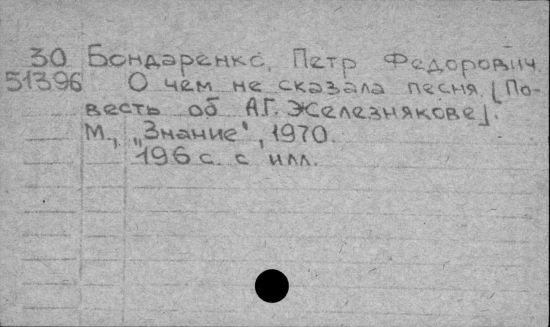 30 Бондаренко, Петр Федорович.
51396 О чем не сказала песня. [По-
весть об А.Г. Железнякове].
М., „Знание", 1970.
196 с. с илл.